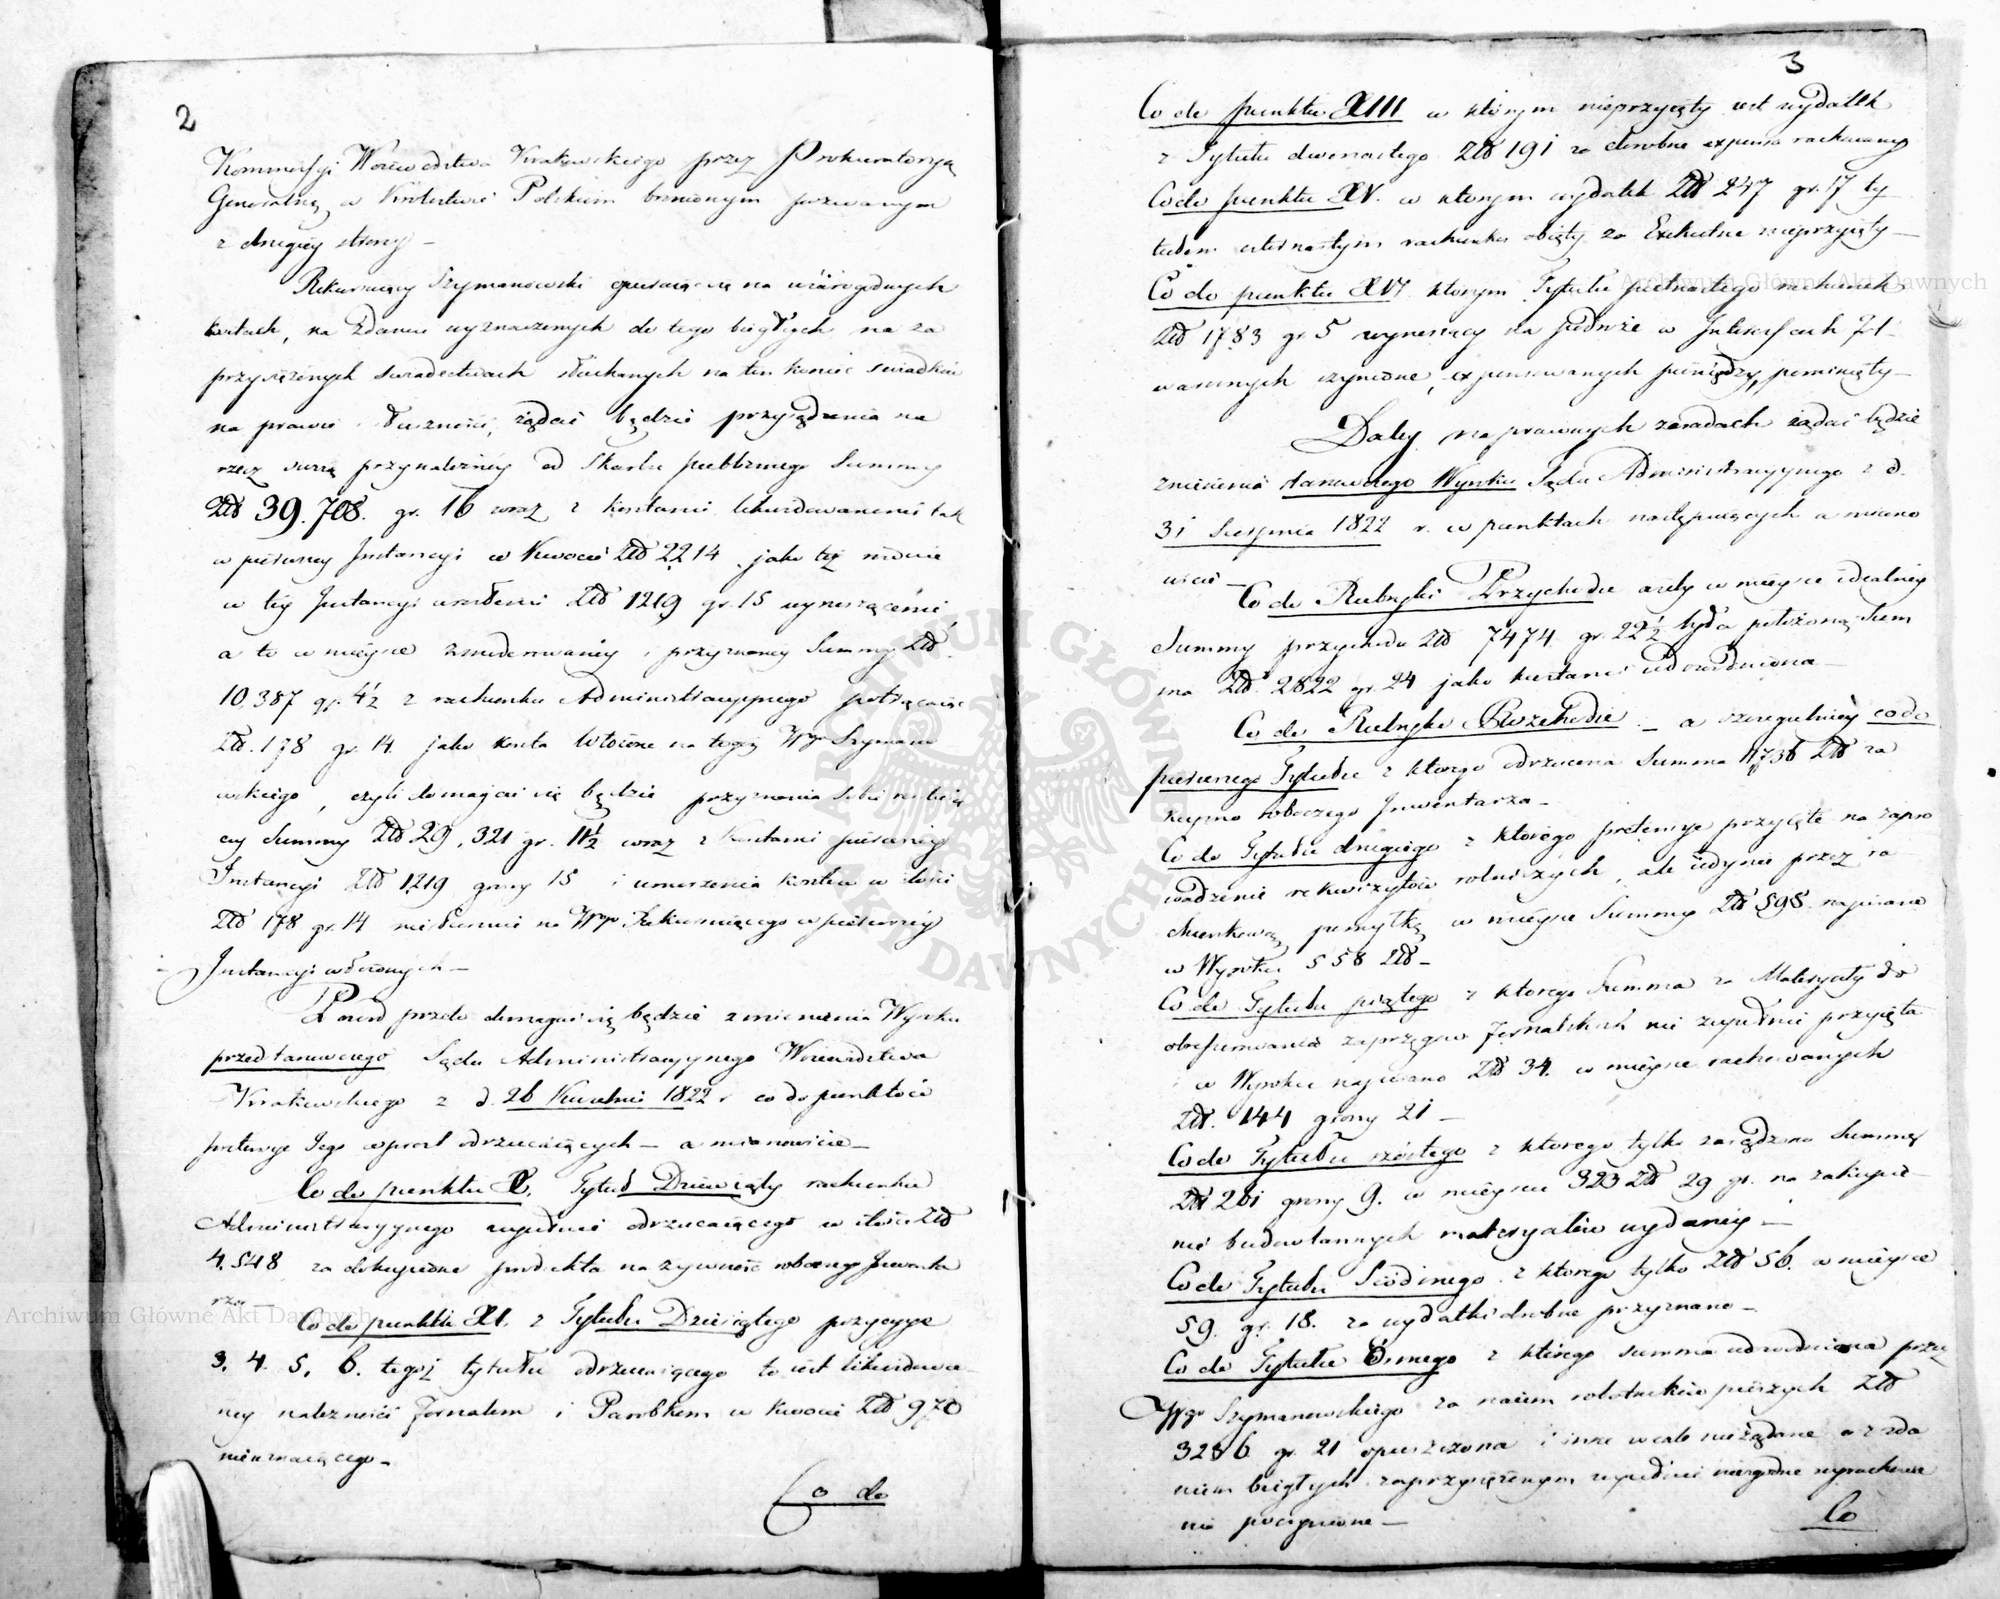 2
Kommissyi Woiewództwa Krakowskiego przez Prokuratoryą
Generalną w Krolestwie Polskiem bronionym pozwanym
z drugiey strony –
Rekuruiący Szymanowski opieraiąc się na wiarogodnych
kartach, na zdaniu wyznaczonych do tego biegłych na za
przysiężonych świadectwach słuchanych na ten koniec świadków
na prawie i słuszności, żądać będzie przysądzenia na
rzecz swoią przynależney od Skarbu publicznego Summy
Złł 39.708. gr. 16 wraz z kosztami likwidowanemi tak
w pierwszey Instancyi w kwocie Złł 2214 jako też
w tey Instancyi Złł 1219 gr. 15 wynoszącemi,
a to w mieysce zmoderowaney i przyznaney Summy Złł
10,387 gr. 4½ z rachunku Administracyinego potrąceniu
Złł. 178 gr. 14. jako koszta włożone na tegoż Wgo Szymano
wskiego, czyli domagać się będzie przyznania sobie
cey Summy Złł 29,321 gr. 11½ wraz z kosztami pierwszey
Instancyi Złł 1219 groszy 15 i umorzenia kosztów w ilości
Złł 178 gr. 14 niesłusznie na Wgo Rekuruiącego w pierwszey
Instancyi włożonych –
przeto domagać się będzie zmienienia Wyroku
przedstanowczego Sądu Administracyinego Woiewództwa
Krakowskiego z d. 26 Kwietnia 1822 r co do punktów
pretensye Jego wprost odrzucaiących – a mianowicie –
Co do punktu X. Tytuł Dziewiąty rachunku
Administracyinego zupełnie odrzucaiącego w ilości Złł
4,548 za dokupione produkta na żywność roboczego Inwenta
rza –
Co do punktu XI. z Tytułu Dziesiątego pozycye
3. 4. 5. 6. tegoż tytułu odrzucaiącego to iest likwidowa
ney należności fornalom i Parobkom w kwocie Złł 970
nieuznaiącego –
Co do
3
Co do punktu XIII w którym nieprzyięty iest wydatek
z Tytułu dwunastego Złł 191 za drobne expensa rachowany
Co do punktu XV. w ktorym wydatek Złł 247 gr. 17 ty
tułem czternastym rachunku obięty za Exekutne nieprzyięty –
Co do punktu XVI ktorym Tytułu piętnastego rachunek
Złł 1783 gr. 5 wynoszący na podróże w Interessach
czynione, expensowanych pieniędzy, pominięty –
Daley na prawnych zasadach żądać będzie
zniesienia stanowczego Wyroku Sądu Administracyinego z d.
31 Sierpnia 1822 r. w punktach następuiących a miano
wicie –
Co do Rubryki Przychodu ażeby w mieysce idealney
Summy przychodu Złł 7474 gr. 22½ była położoną Sum
ma Złł. 2822 gr. 24 jako kartami udowodniona –
Co do Rubryki Rozchodu – a szczegulniey co do
pierwszego Tytułu z ktorego odrzucona Summa 1736 Złł za
kupno roboczego Inwentarza –
Co do Tytułu drugiego z ktorego pretensye przyięte na zapro
wadzenie rekwizytów rolniczych, ale iedynie przez ra
chunkową pomyłkę w mieysce Summy Złł 598 napisano
w Wyroku 558 Złł –
Co do Tytułu piątego z ktorego Summa za Materyały do
zaprzęgów fornalskich nie zupełnie przyięta
i w Wyroku napisano Złł 34. w mieysce rachowanych
Złł. 144 groszy 21 –
Co do Tytułu szóstego z ktorego tylko zasądzono Summę
Złł 261 groszy 9. w mieyscu 323 Złł 29 gr. na zakupie
nie budowlannych materyałów wydaney –
Co do Tytułu Siódmego z ktorego tylko Złł 56. w mieysce
59. gr. 18. za wydatki drobne przyznano –
Co do Tytułu Osmego z którego summa udowodniona przez
Wgo Szymanowskiego za naiem robotników pieszych Złł
3286 gr. 21 opuszczona i inne wcale nieżądane a z zda
niem biegłych zaprzysiężonym zupełnie niezgodne wyrachowa
nie pociągnione –
Co
Archiwum Główne Akt Dawnych
Archiwum Główne Akt Dawnych
ARCHIWUM GŁÓWNE AKT DAWNYCH